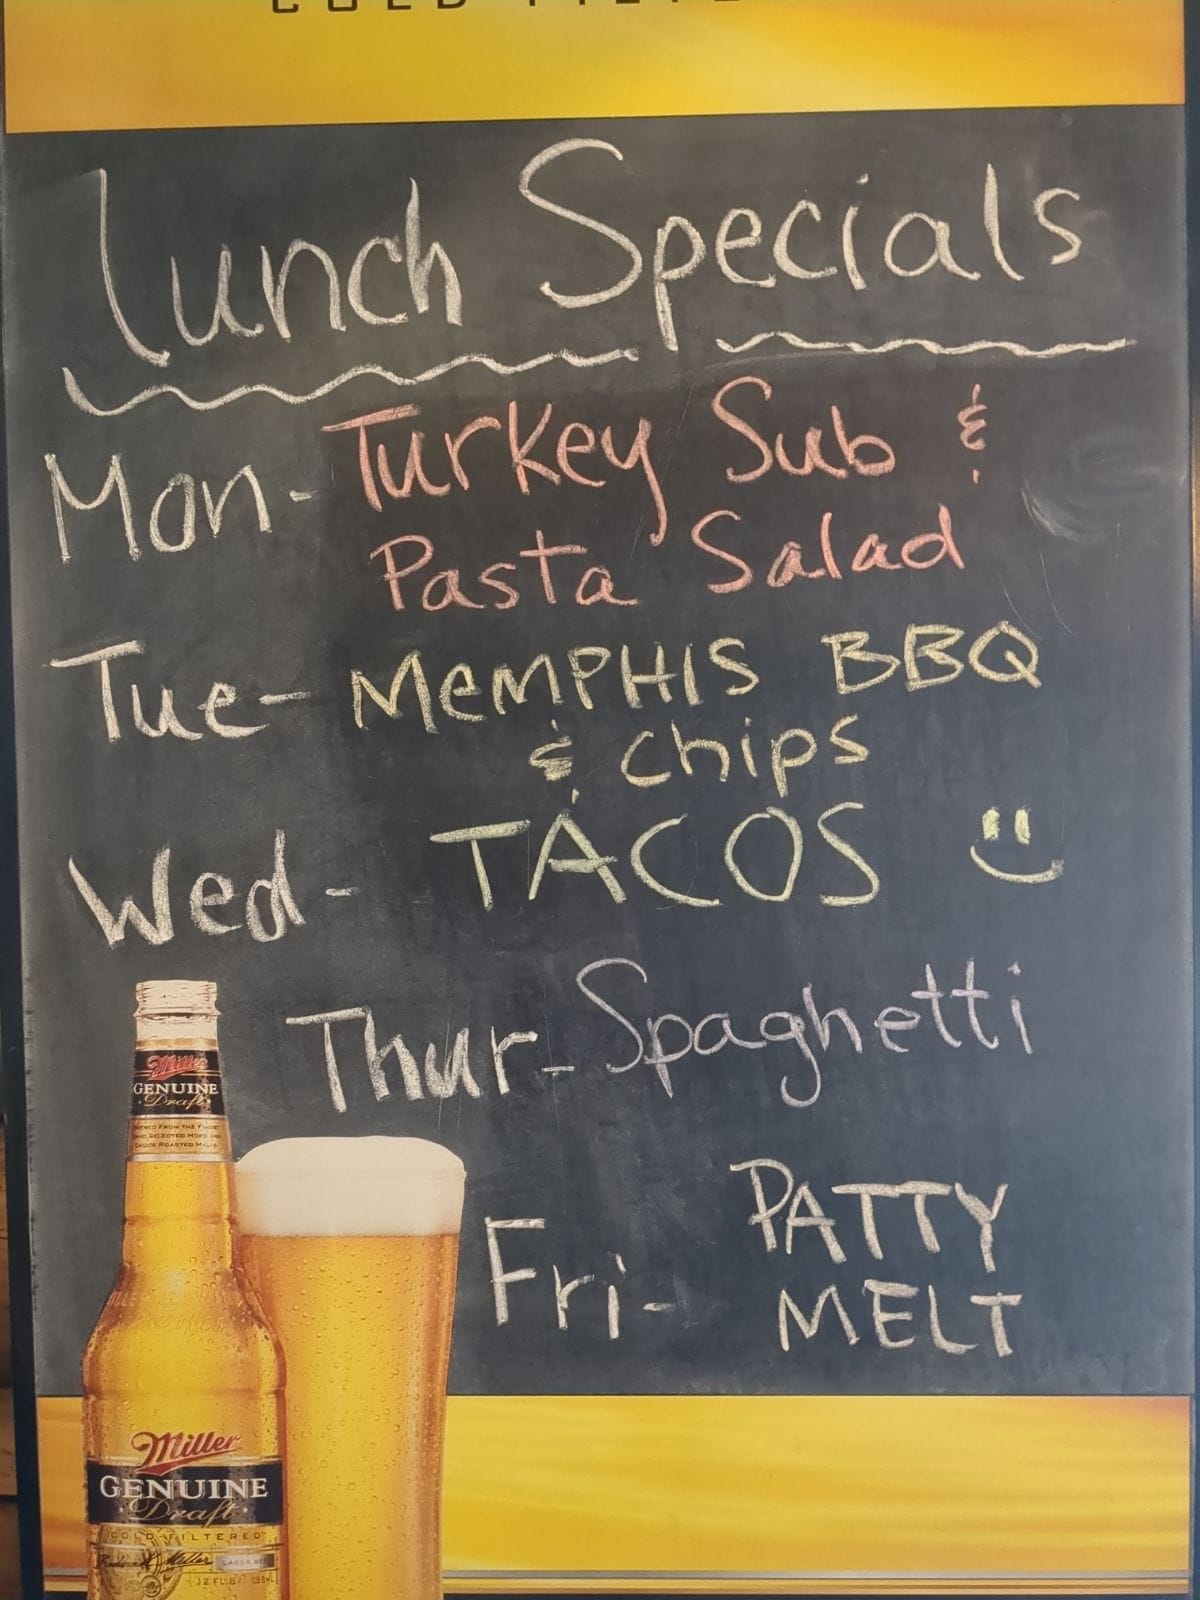 Lunch Specials
Mon- Turkey Sub &
Pasta Salad
Tue- MeMPHIS BBQ
& Chips
Wed- TACOS
Thur- Spaghetti
Fri- PATTY
MELT
Miller
GENUINE
Draft
BREWED FROM THE FINEST
HAND SELECTED HOPS AND
CHOICE ROASTED MALTS
Miller
GENUINE
Draft
COLD FILTERED
LAGER BEER